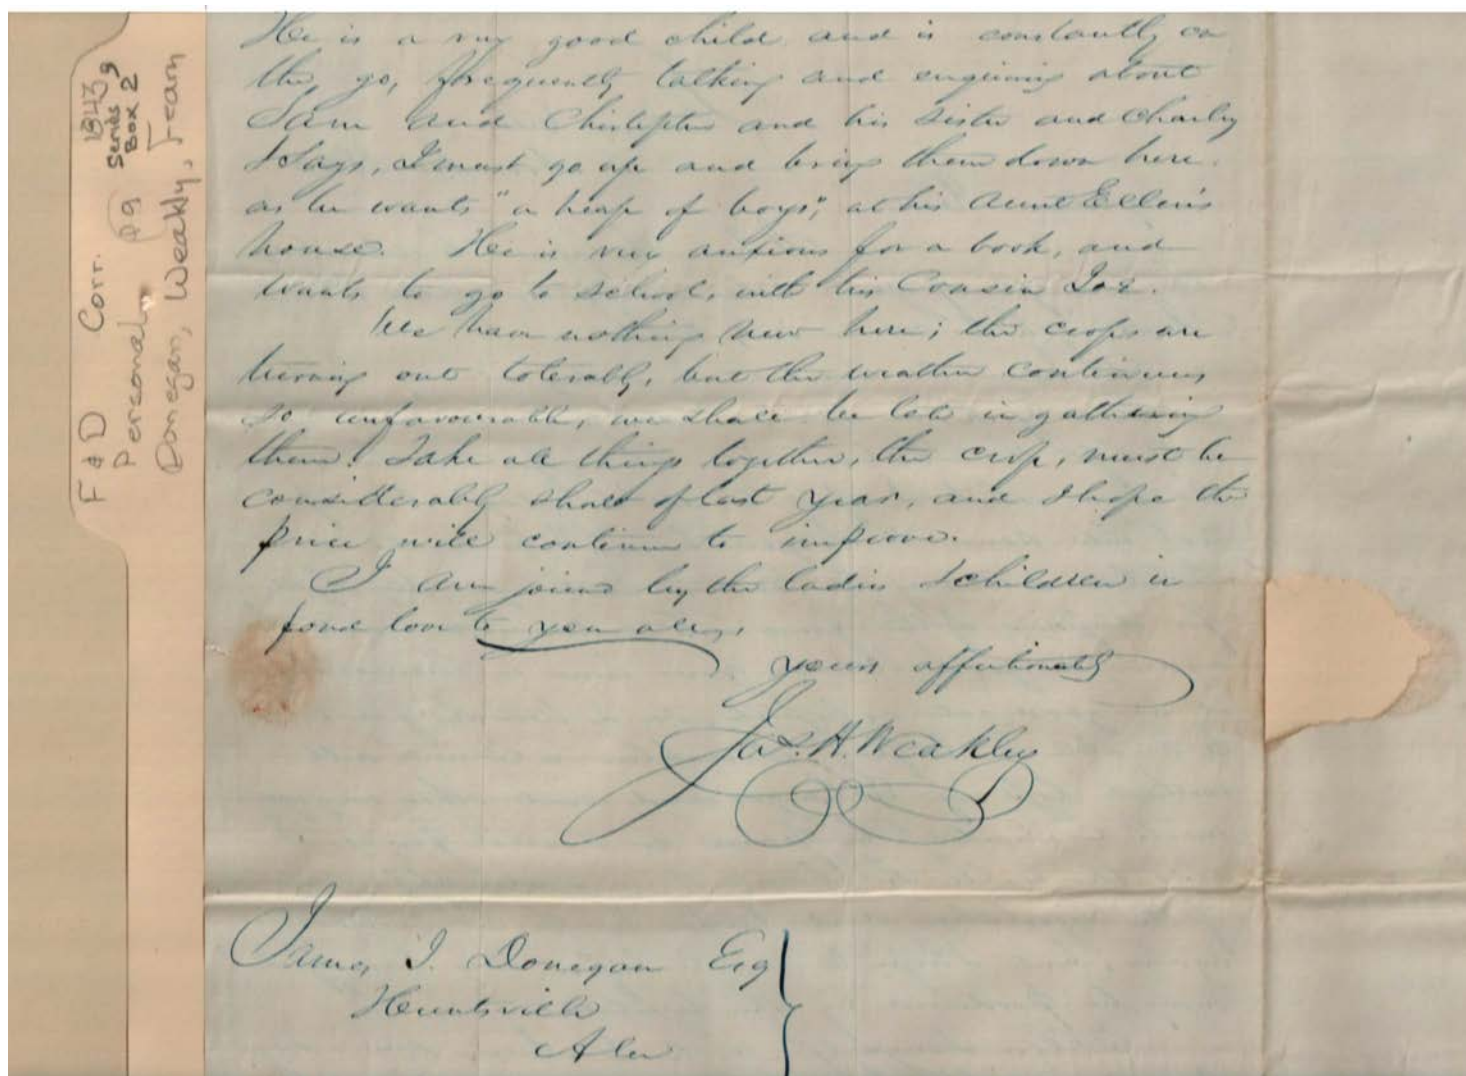 He is a very good child and is constantly on
the go, frequently talking and enquiring about
Sam and Christopher and his sister and Charley
& Says, I must go up and bring them down here.
as he wants "a heap of boys", at his Aunt Ellen's
house. He is very anxious for a book, and
wants to go to School, with his Cousin
We have nothing new here; the crops are
turning out tolerably, but the weather continues
so unfavourable, we shall be late in gathering
them! Take all things together, the crop, must be
considerably short of last year, and I hope the
price will continue to improve.
I am joined by the ladies & children in
fond love to you all,
yours affectionately
Jas. H. Weakley
James J. Donegan Esq
Huntsville
Ala
F & D Corr. 1843
Personal pg 9 Series 9
Box 2
Donegan, Weakly, Fearn